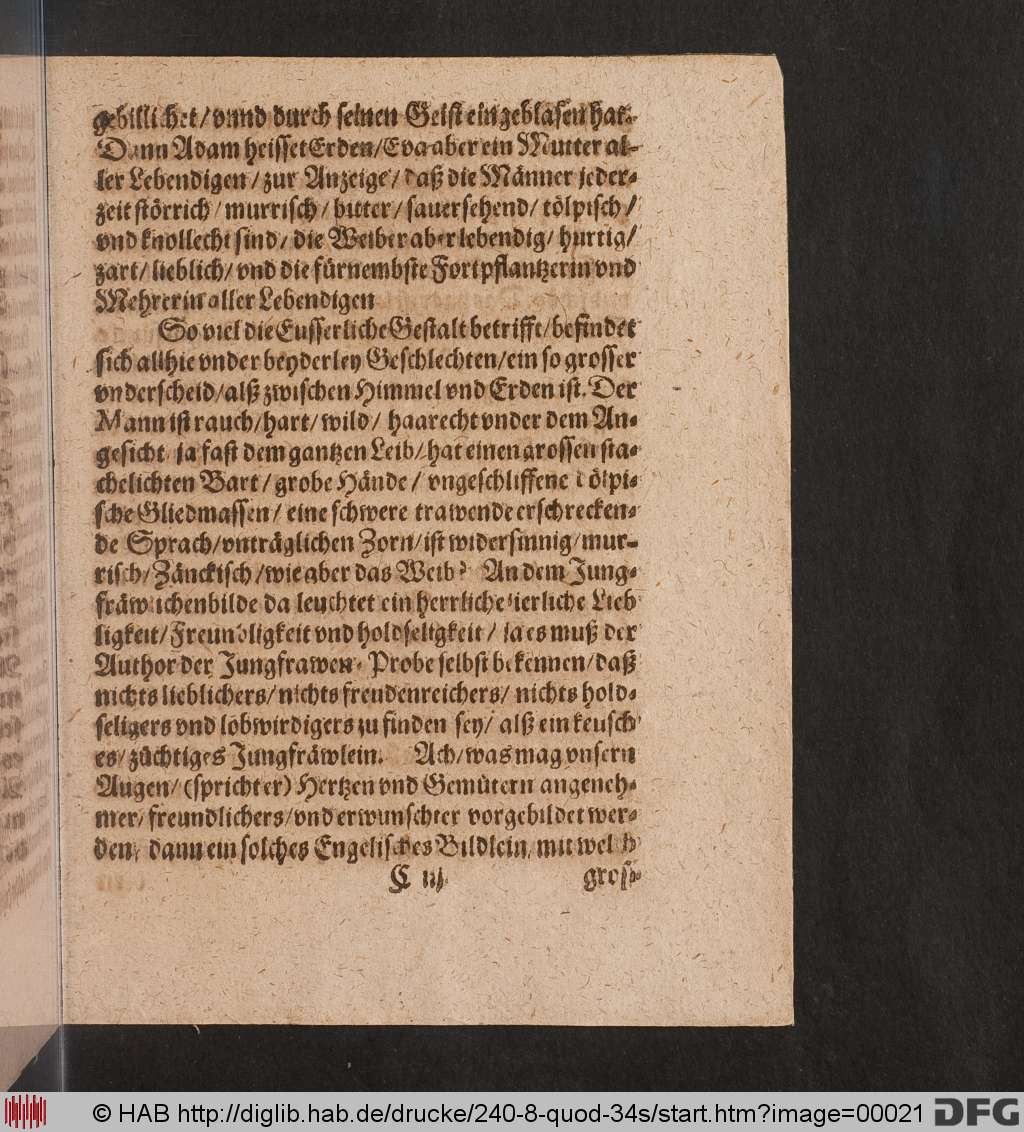 gebillichet / vnnd durch seinen Geist eingeblasen hat.
Dann Adam heisset Erden / Eva aber ein Mutter al-
ler Lebendigen / zur Anzeige / daß die Männer jeder-
zeit störrich / murrisch / bitter / sauersehend / tölpisch /
vnd knollecht sind / die Weiber aber lebendig / hurtig /
zart / lieblich / vnd die fürnembste Fortpflantzerin vnd
Mehrerin aller Lebendigen
So viel die Eusserliche Gestalt betrifft / befindet
sich allhie vnder beyderley Geschlechten / ein so grosser
vnderscheid / alß zwischen Himmel vnd Erden ist. Der
Mann ist rauch / hart / wild / haarecht vnder dem An-
gesicht / ja fast dem gantzen Leib / hat einen grossen sta-
chelichten Bart / grobe Hände / vngeschliffene tölpi-
sche Gliedmassen / eine schwere trawende erschrecken-
de Sprach / vnträglichen Zorn / ist widersinnig / mur-
risch / Zänckisch / wie aber das Weib? An dem Jung-
fräwlichenbilde da leuchtet ein herrliche zierliche Lieb
ligkeit / Freundligkeit vnd holdseligkeit / ja es muß der
Author der Jungfrawen-Probe selbst bekennen / daß
nichts lieblichers / nichts freudenreichers / nichts hold-
seligers vnd lobwirdigers zu finden sey / alß ein keusch
es / züchtiges Jungfräwlein. Ach / was mag vnsern
Augen / (spricht er) Hertzen vnd Gemütern angeneh-
mer / freundlichers / vnd erwunschter vorgebildet wer-
den / dann ein solches Engelisches Bildlein / mit welch
C iij
gros-
© HAB http://diglib.hab.de/drucke/240-8-quod-34s/start.htm?image=00021 DFG